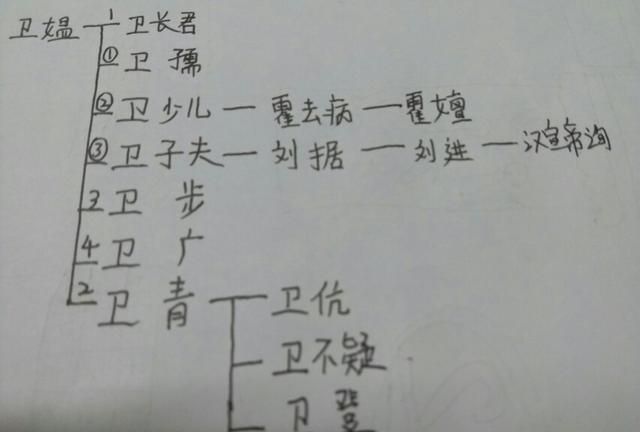 卫媪 1 卫长君
① 卫孺
② 卫少儿 — 霍去病 — 霍嬗
③ 卫子夫 — 刘据 — 刘进 — 汉宣帝询
3 卫步
4 卫广
2 卫青 卫伉
卫不疑
卫登